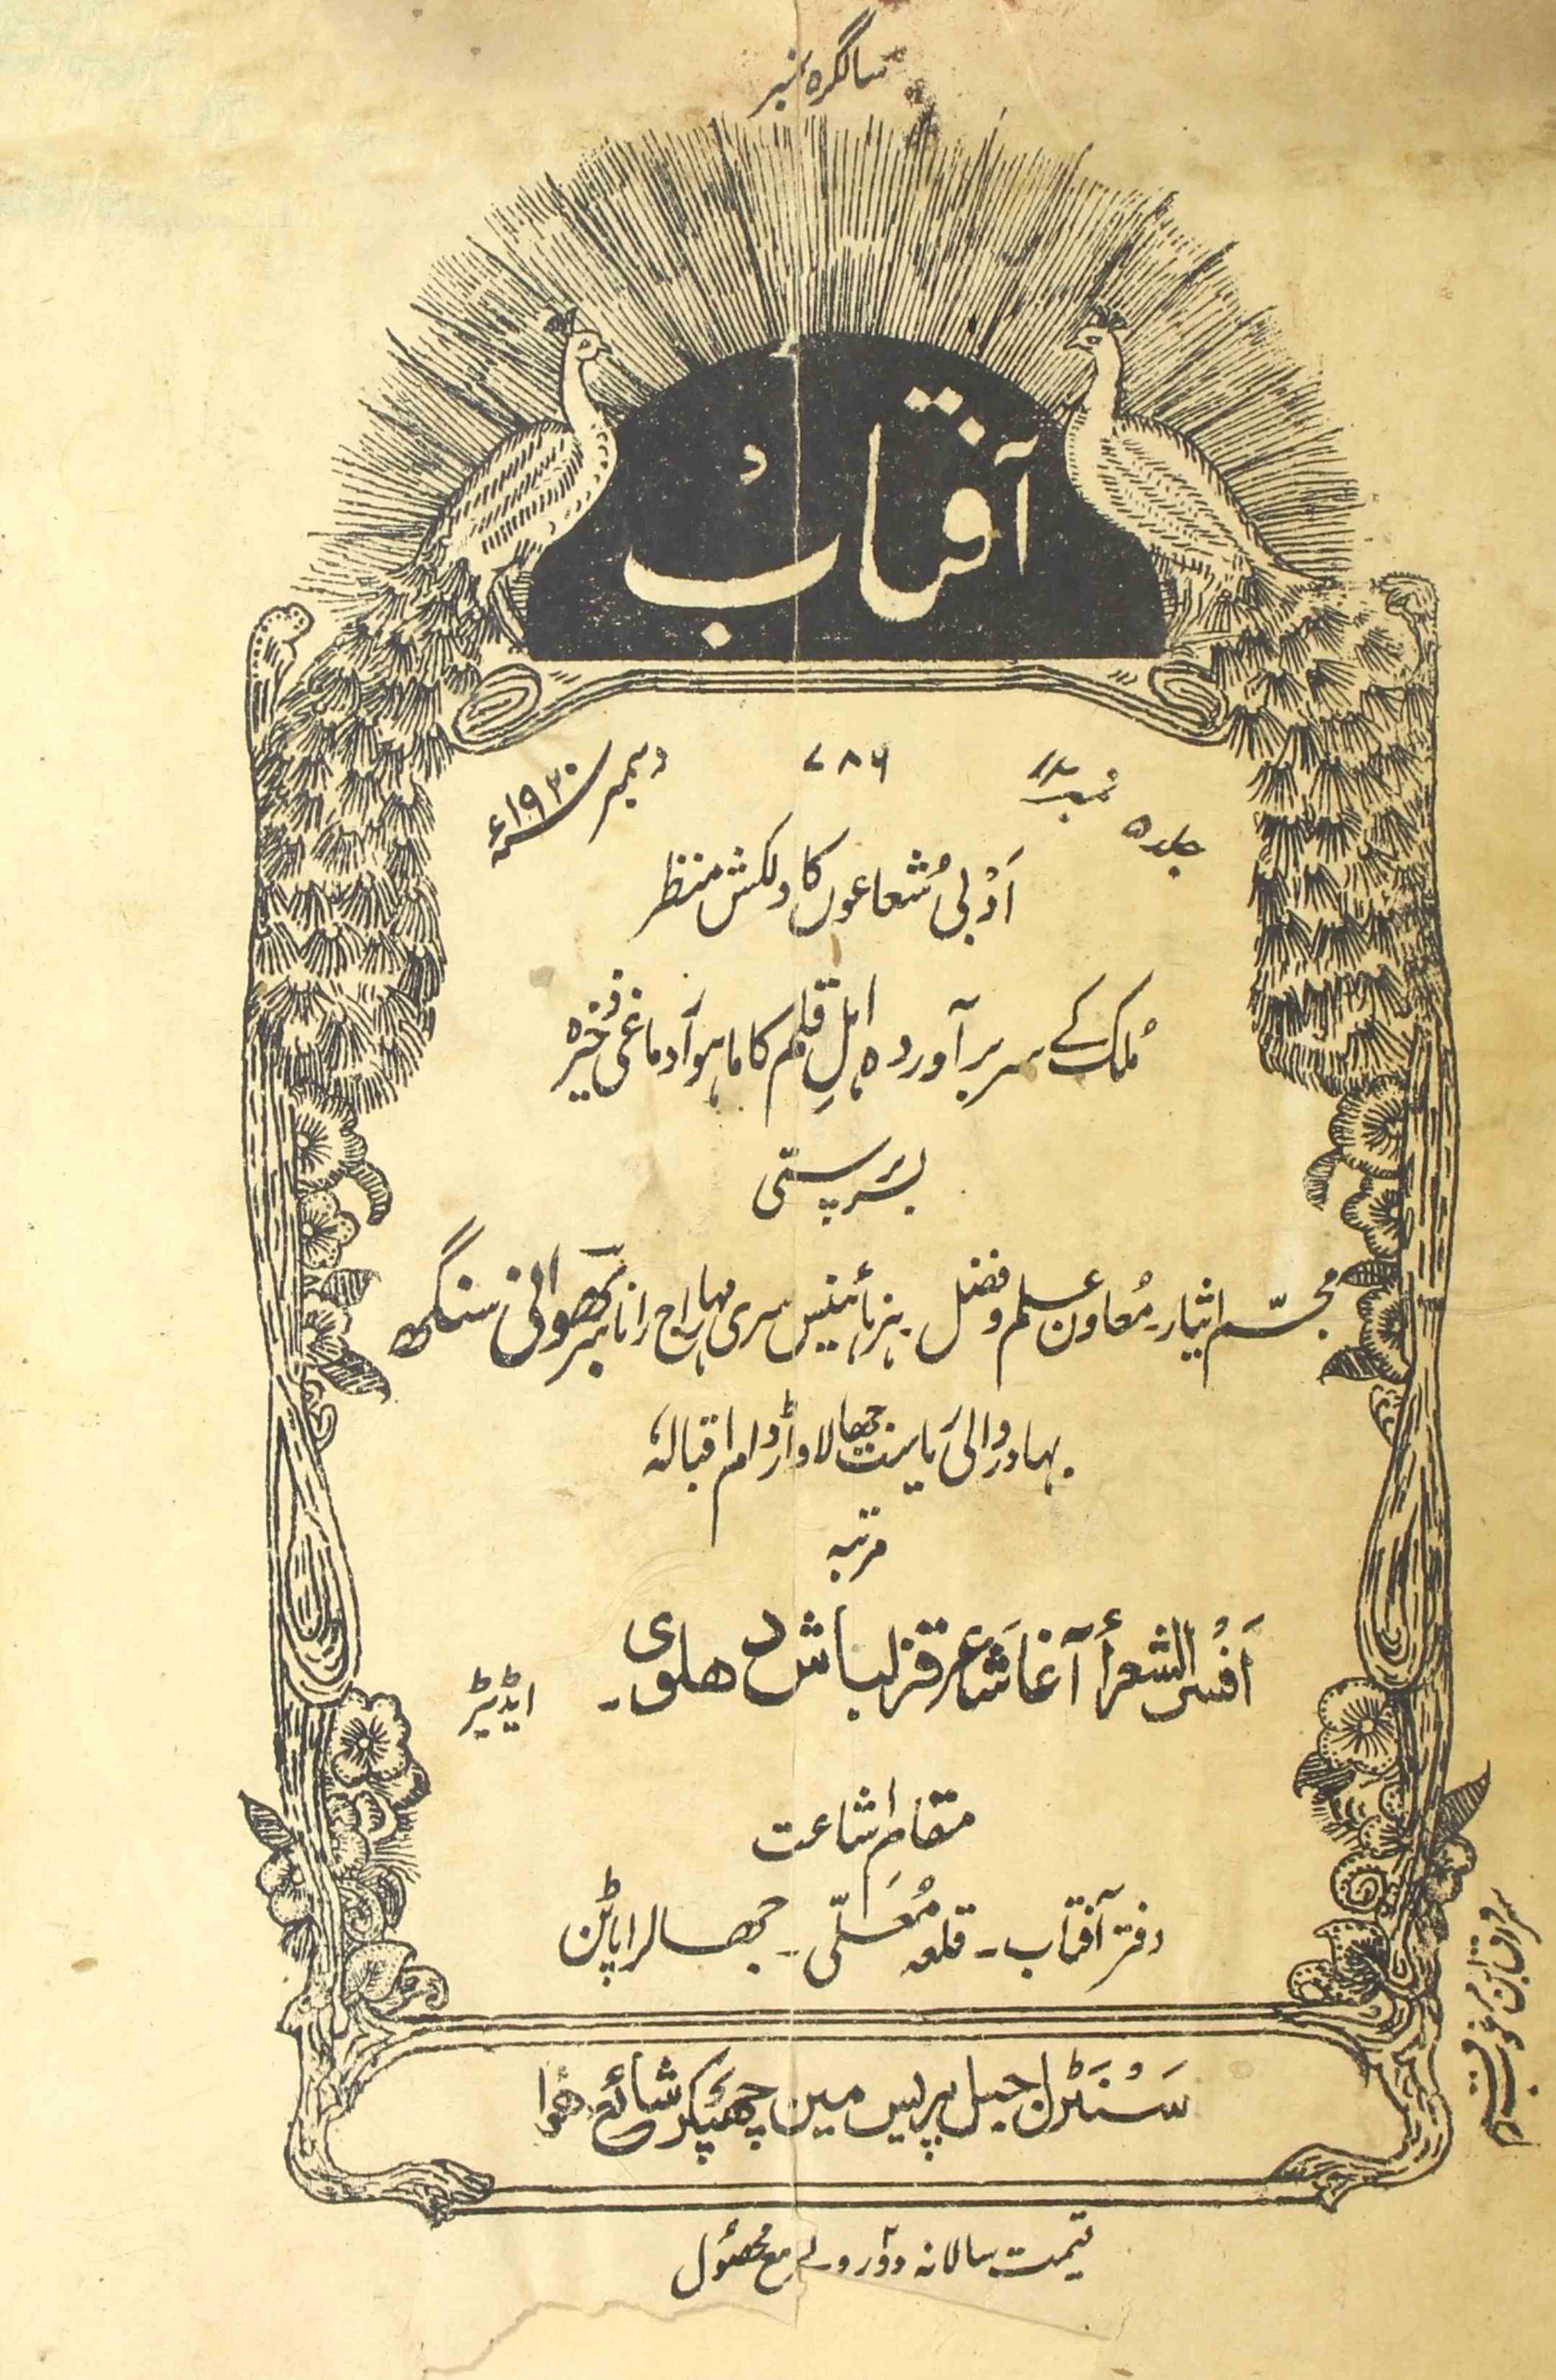 سالگرہ نمبر
آفتاب
جلد ۵ نمبر ۷۸۶ دسمبر ۱۹۳۰ء
اَدَبی شُعاعوں کا دلکش منظر
مُلک کے سربرآوردہ اہلِ قلم کا ماہوار دماغی ذخیرہ
بسَرپرستی
مجسّم ایثار۔ مُعاون علم وفضل ہزہائینیس سری مہاراج رانا سر بھوانی سنگھ
بہادر والیٔ ریاست جھالاواڑ دام اقبالہٗ
مرتبہ
اَفسُر الشعرأ آغا شاعر قزلباش دھلوی۔ ایڈیٹر
مقام اشاعت
دفتر آفتاب۔ قلعہ مُعلّٰی۔ جھالراپاٹن
سَنٹَرل جیل پریس مین چھپکر شائع ھُوا
قیمت سالانہ دو روپے مع محصُول
سرورق ابن مرغوب رقم